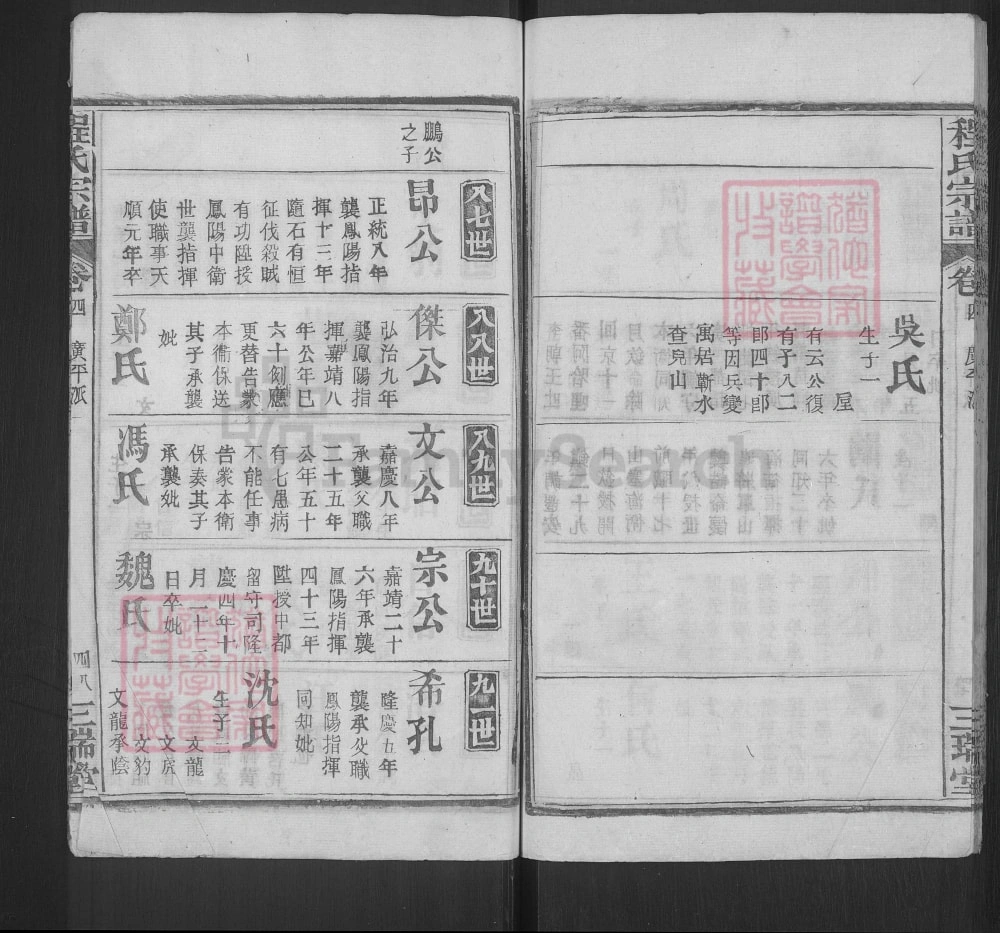 程氏宗譜
卷四
三瑞堂
吳氏
生子一
屋
有云公復
有子八二
郎四十郎
等因兵變
寓居蘄水
查兒山
八七世
鵬公
之子
昂公
正統八年
襲鳳陽指
揮十三年
隨石有恒
征伐殺賊
有功陞授
鳳陽中衛
世襲指揮
使職事天
順元年卒
八八世
傑公
弘治九年
襲鳳陽指
揮嘉靖八
年公年已
六十例應
更替告蒙
本衞保送
其子承襲
妣
鄭氏
八九世
文公
嘉慶八年
承襲父職
二十五年
公年五十
有七愚病
不能任事
告蒙本衛
保奏其子
承襲妣
馮氏
九十世
宗公
嘉靖二十
六年承襲
鳳陽指揮
四十三年
陞授中都
留守司隆
慶四年十
月二十二
日卒妣
魏氏
九一世
希孔
隆慶五年
襲承父職
鳳陽指揮
同知妣
沈氏
生子三
文龍
文虎
文豹
文龍承陰
程氏宗譜
卷四
廣平派
四八
三瑞堂
FamilySearch